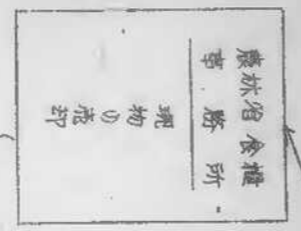 農林省食糧
事務所
現物の